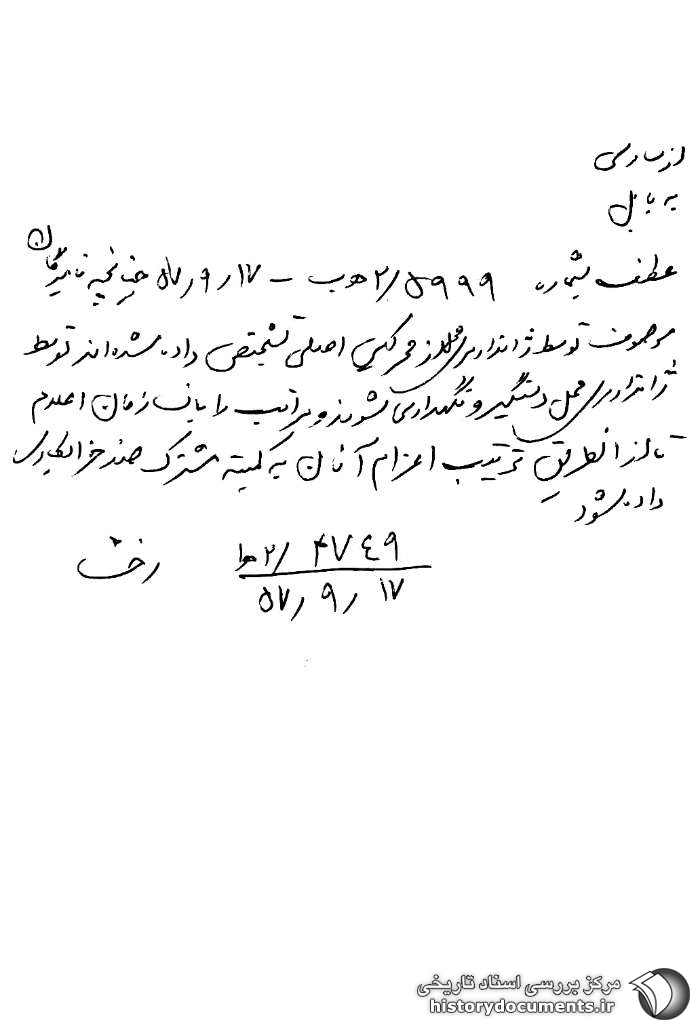 از ساری
به بابل
عطف بشماره ۵۹۹۹/۲ه‍ب - ۱۷/۹/۵۷ چنانچه نامبردگان
موصوف توسط ژاندارمری محل از محرکین اصلی تشخیص داده شده اند توسط
ژاندارمری محل دستگیر و نگهداری شوند و مراتب را با نشان اعلام
تا از اینطریق ترتیب اعزام آنان به کمیته مشترک ضد خرابکاری
داده شود
۴۷۴۹/۲ه‍ا
۱۷/۹/۵۷
مرکز بررسی اسناد تاریخی
historydocuments.ir